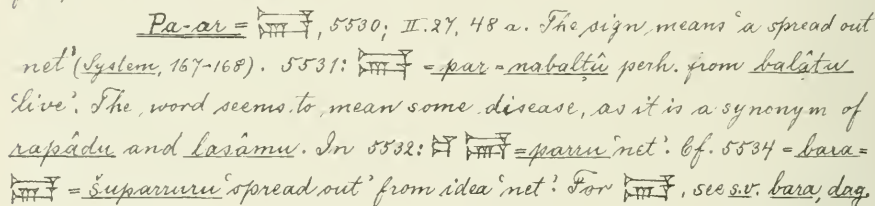 Pa-ar = , 5530; II. 27, 48 a. The sign means 'a spread out
net' (System, 167-168). 5531: = par = nabaltû perh. from balâtu
'live'. The word seems to mean some disease, as it is a synonym of
rapâdu and lasâmu. In 5532: = parru 'net'. Cf. 5534 = bara =
 = šuparruru 'spread out' from idea 'net'. For , see s.v. bara, dag.